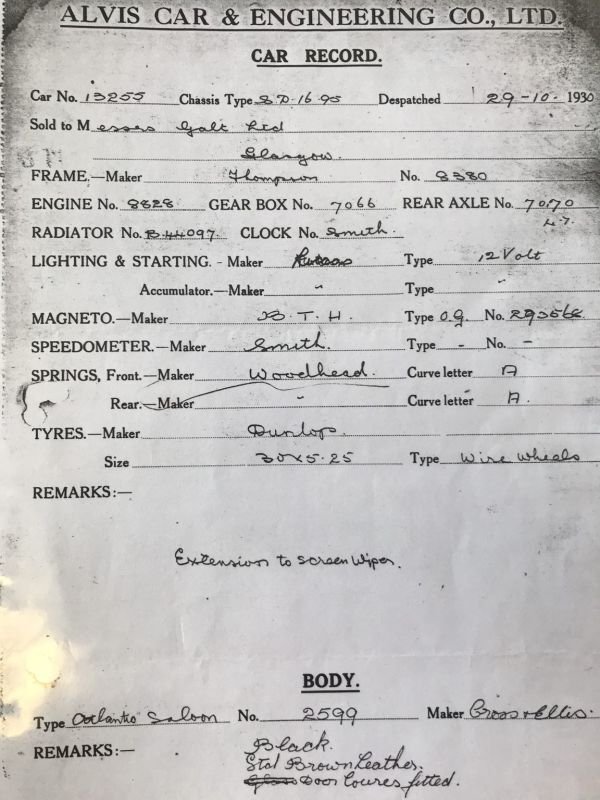 ALVIS CAR & ENGINEERING CO., LTD.
CAR RECORD.
Car No. 13255 Chassis Type S.D. 16.95 Despatched 29-10-1930
Sold to Messrs Galt Ltd
Glasgow.
FRAME.—Maker Thompson No. 8380
ENGINE No. 8828 GEAR BOX No. 7066 REAR AXLE No. 7070
4.7.
RADIATOR No. B44097 CLOCK No. Smith.
LIGHTING & STARTING.-Maker Type 12 Volt
Accumulator.—Maker " Type "
MAGNETO.—Maker B.T.H. Type O.G. No. 293568
SPEEDOMETER.—Maker Smith. Type - No. -
SPRINGS, Front.—Maker Woodhead. Curve letter A
Rear.—Maker " Curve letter A.
TYRES.—Maker Dunlop.
Size 30x5.25 Type Wire Wheels
REMARKS:—
Extension to screen Wiper.
BODY.
Type Atlantic Saloon No. 2599 Maker Cross & Ellis.
REMARKS:— Black.
Std Brown Leather.
Door Louvres fitted.